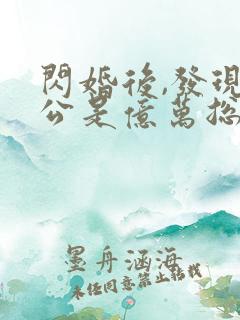 閃婚後,發現
公是億萬总
墨舟涵海
未经同意禁止转载